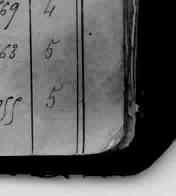 69 4
63 5
055 5